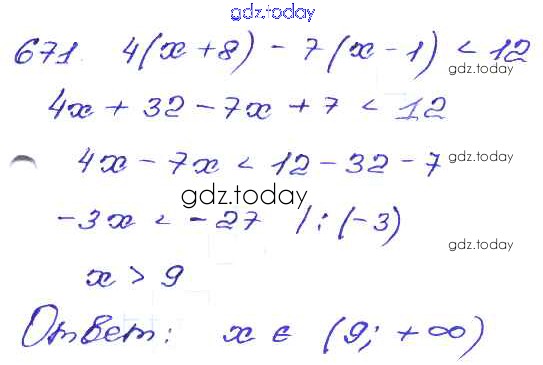 gdz.today
671. 4(x+8) - 7(x-1) < 12
gdz.today
4x + 32 - 7x + 7 < 12
4x - 7x < 12 - 32 - 7
gdz.today
gdz.today
-3x < -27 /:(-3)
gdz.today
x > 9
Ответ: x ∈ (9; +∞)